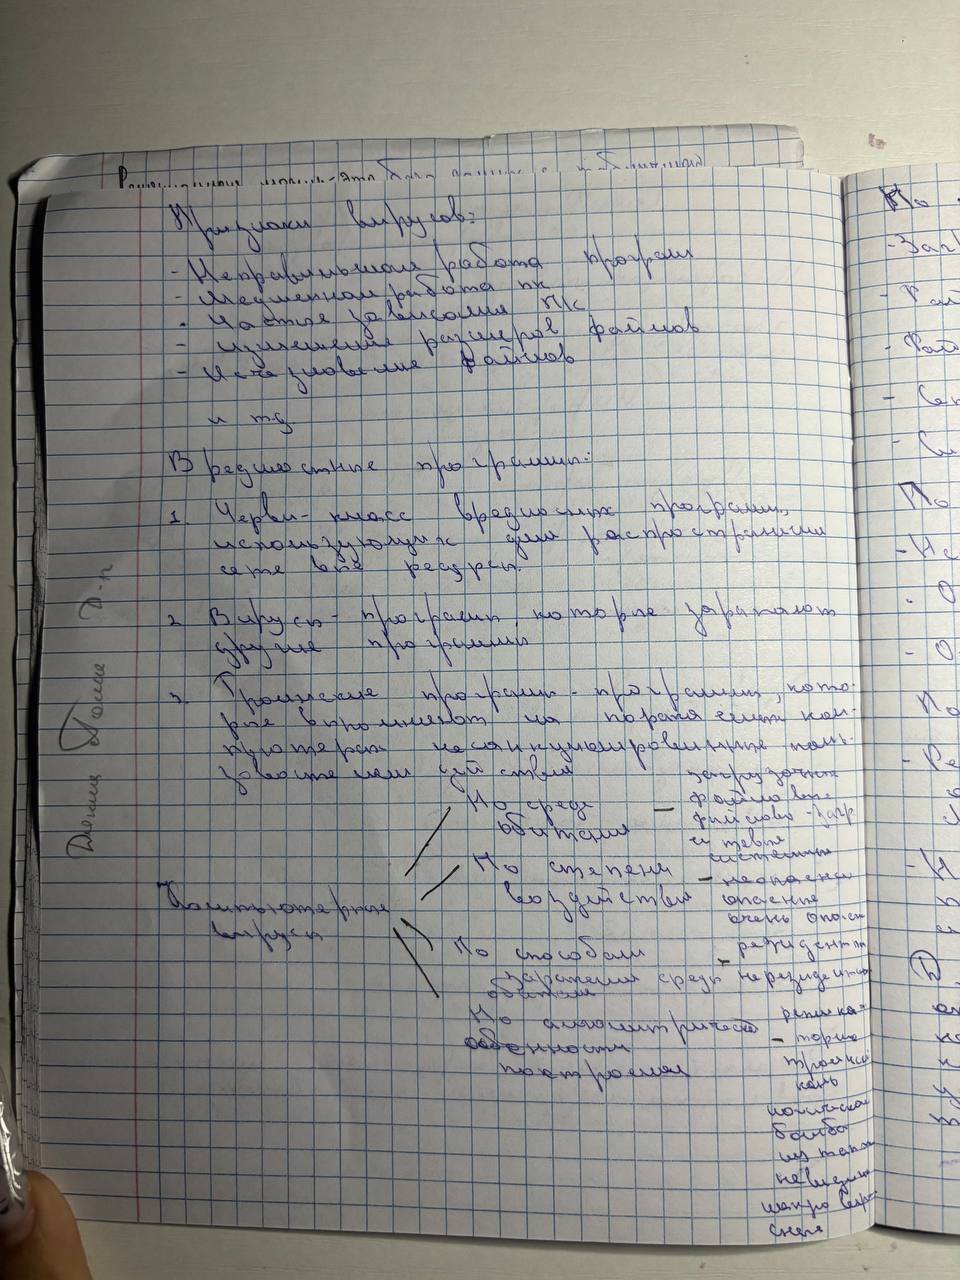 Признаки вирусов:
- Неправильная работа програм
- Медленная работа пк
- Частые зависания ПК
- изменения размеров файлов
- Исчезновение файлов
и тд
Вредностные программы:
1. Черви - класс вредносных программ,
использующих для распространения
сетевые ресурсы.
2 Вирусы - программы, которые заражают
другие программы
3. Троянские программы - программы, кото-
рые выполняют на поражённых ком-
пьютерах несанкционированные поль-
зователем действия
Компьютерные
вирусы
По среде
обитания
- загрузочные
файловые
файлово-загр
сетевые
системные
По степени
воздействия
- неопасные
опасные
очень опасн
По способам
заражения среды
обитания
- резидентн
нерезидентны
По алгоритмическ
особенности
построения
- реплика-
торы
троянск
конь
логическая
бомба
мутант
невидим
макровир-
Поля Д-п
По
- Загр
- Фай
- Фай
- Се
- Си
По
- Не
- О
- О
По
- Ре
- Н